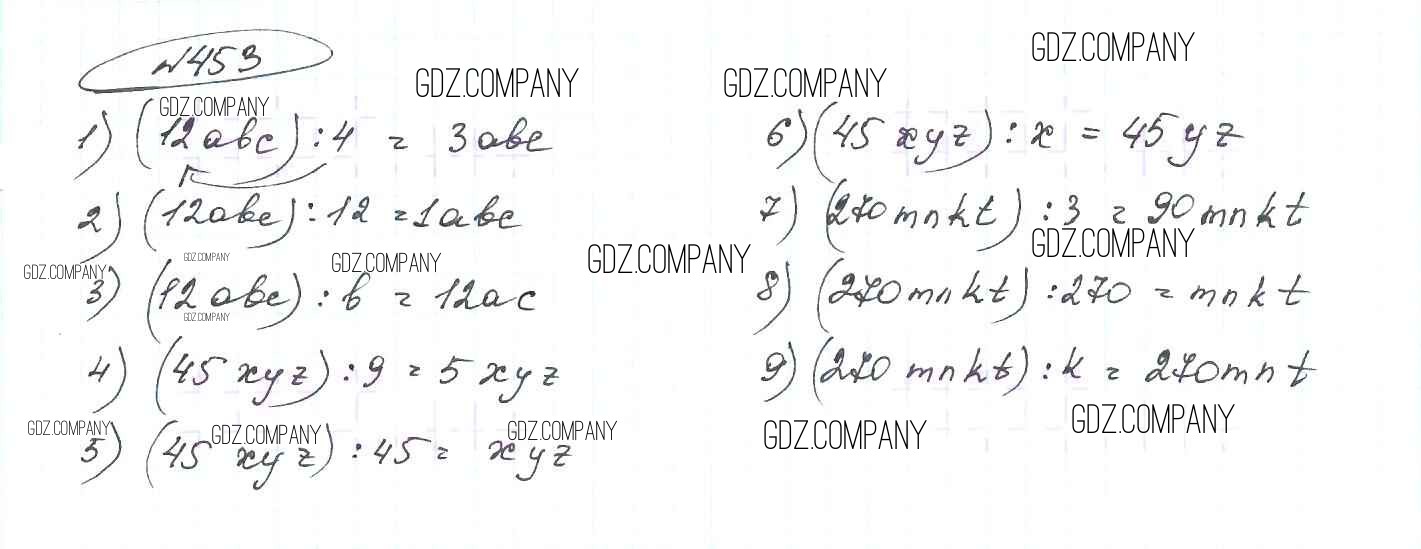 №453
GDZ.COMPANY
GDZ.COMPANY
GDZ.COMPANY
GDZ.COMPANY
1) (12abc) : 4 = 3abc
2) (12abc) : 12 = 1abc
GDZ.COMPANY
GDZ.COMPANY
GDZ.COMPANY
3) (12abc) : b = 12ac
GDZ.COMPANY
4) (45xyz) : 9 = 5xyz
GDZ.COMPANY
GDZ.COMPANY
GDZ.COMPANY
5) (45xyz) : 45 = xyz
6) (45xyz) : x = 45yz
7) (270mnkt) : 3 = 90mnkt
GDZ.COMPANY
GDZ.COMPANY
8) (270mnkt) : 270 = mnkt
9) (270mnkt) : k = 270mnt
GDZ.COMPANY
GDZ.COMPANY